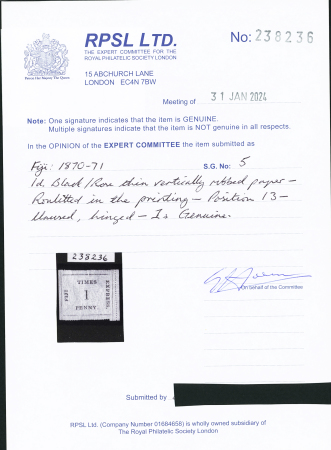 RPSL LTD.
THE EXPERT COMMITTEE FOR THE
ROYAL PHILATELIC SOCIETY LONDON
No: 238236
15 ABCHURCH LANE
LONDON EC4N 7BW
Meeting of 31 JAN 2024
Note: One signature indicates that the item is GENUINE.
Multiple signatures indicate that the item is NOT genuine in all respects.
In the OPINION of the EXPERT COMMITTEE the item submitted as
Fiji: 1870-71 S.G. No: 5
1d. Black/Rose thin vertically ribbed paper -
Rouletted in the printing - Position 13 -
Unused, hinged - Is Genuine.
238236
TIMES
FIJI 1 EXPRESS
PENNY
On behalf of the Committee
Submitted by
RPSL Ltd. (Company Number 01684658) is wholly owned subsidiary of
The Royal Philatelic Society London